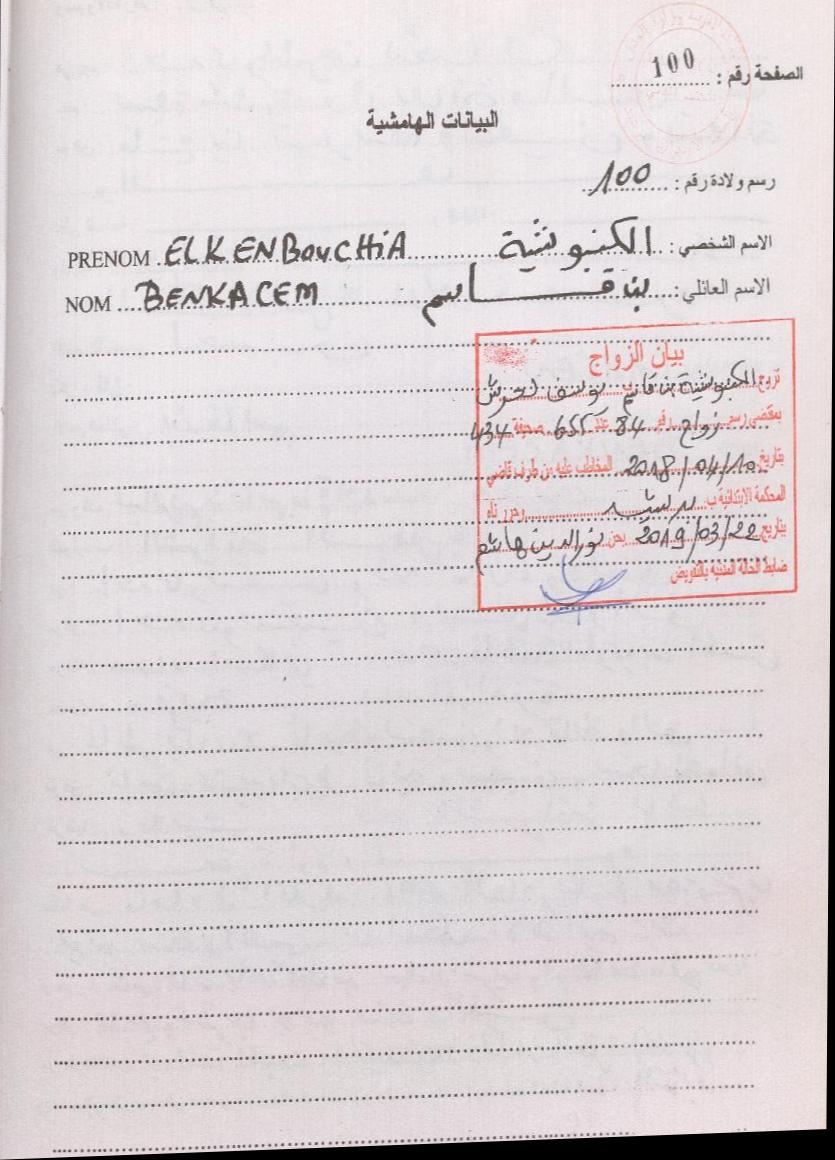 الصفحة رقم : 100
البيانات الهامشية
رسم ولادة رقم : 100
الاسم الشخصي : الكنبوشية PRENOM ELKENBOUCHIA
الاسم العائلي : بن قاسم NOM BENKACEM
بيان الزواج
تزوج الكنبوشية بن قاسم ب يوسف
بمقتضى رسم زواج رقم 84 عدد 655 صحيفة 434
بتاريخ 2018/04/10 المخاطب عليه من طرف قاضي
المحكمة الابتدائية ب برشيد وحررناه
بتاريخ 2019/03/22 نحن نورالدين هاشم
ضابط الحالة المدنية بالتفويض